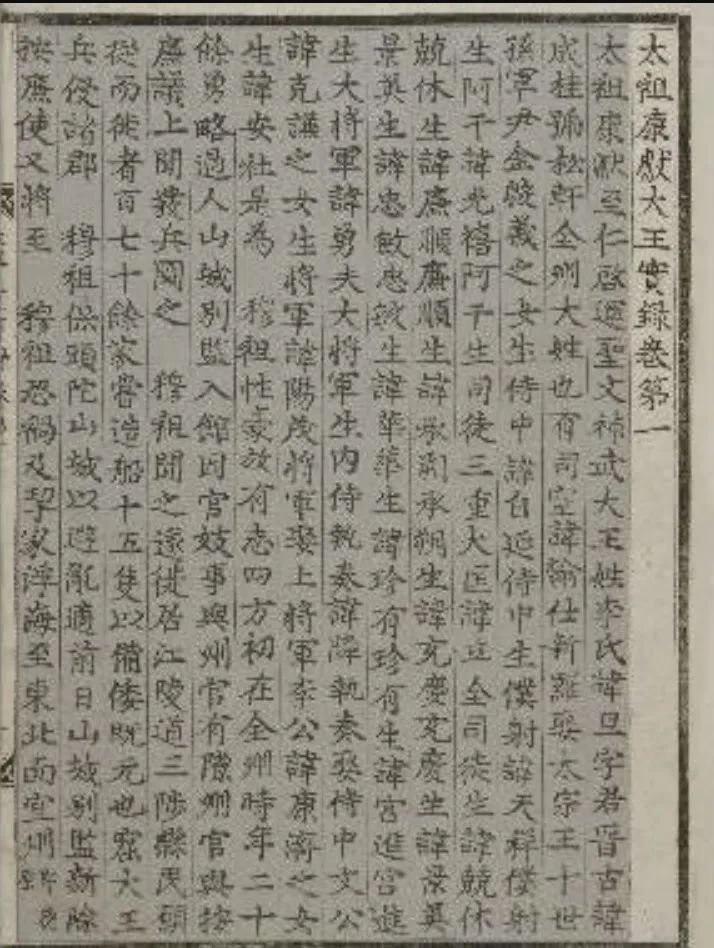 太祖康獻大王實錄卷第一
太祖康獻至仁啓運聖文神武大王姓李氏諱旦字君晋古諱
成桂號松軒全州大姓也有司空諱翰仕新羅娶太宗王十世
孫軍尹金殷義之女生侍中諱自延侍中生僕射諱天祥僕射
生阿干諱光禧阿干生司徒三重大匡諱立全司徒生諱兢休
兢休生諱廉順廉順生諱承朔承朔生諱充慶充慶生諱景英
景英生諱忠敏忠敏生諱華華生諱珍有珍有生諱宮進宮進
生大將軍諱勇夫大將軍生內侍執奏諱隣執奏娶侍中文公
諱克謙之女生將軍諱陽茂將軍娶上將軍李公諱康濟之女
生諱安社是為 穆祖性豪放有志四方初在全州時年二十
餘勇略過人山城別監入館因官妓事與州官有隙州官與按
廉議上聞發兵圖之 穆祖聞之遂徙居江陵道三陟縣民願
從而徙者百七十餘家嘗造船十五隻以備倭旣元也窟大王
兵侵諸郡 穆祖保頭陀山城以避亂適前日山城別監新除
按廉使又將至 穆祖恐禍及挈家浮海至東北面宜州